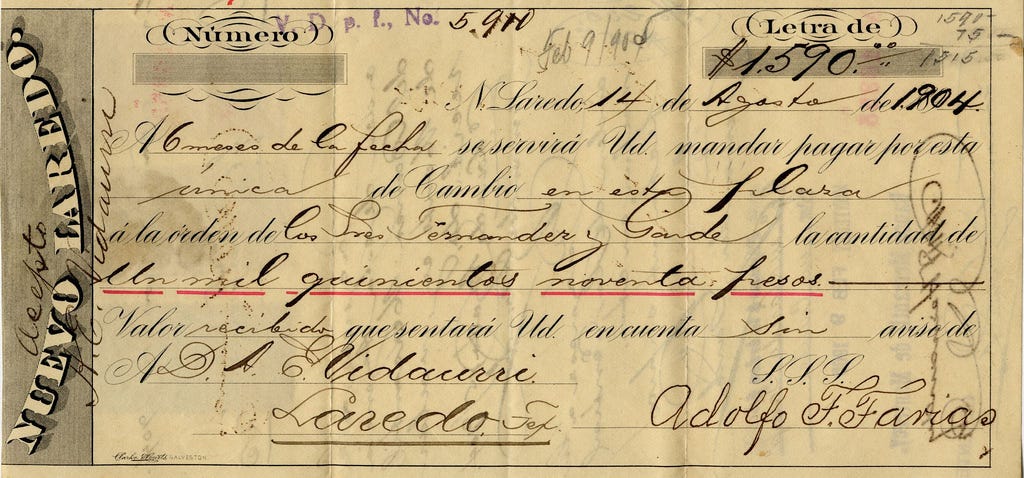 V. D. p. f., No. 5,910
Número
Letra de
1590-
75-
1515
Feb 9/904
$1.590.00
N. Laredo, 14 de Agosto de 1904.
A 6 meses de la fecha se servirá Ud. mandar pagar por esta
única de Cambio en esta plaza
á la orden de los Sres Fernandez y Garde la cantidad de
Un mil quinientos noventa pesos.
Valor recibido que sentará Ud. en cuenta sin aviso de
A D. A. E. Vidaurri. S. S. S.
Laredo, Tex. Adolfo F. Farias
NUEVO LAREDO.
Acepto
A. E. Vidaurri
Clarke & Courts GALVESTON.